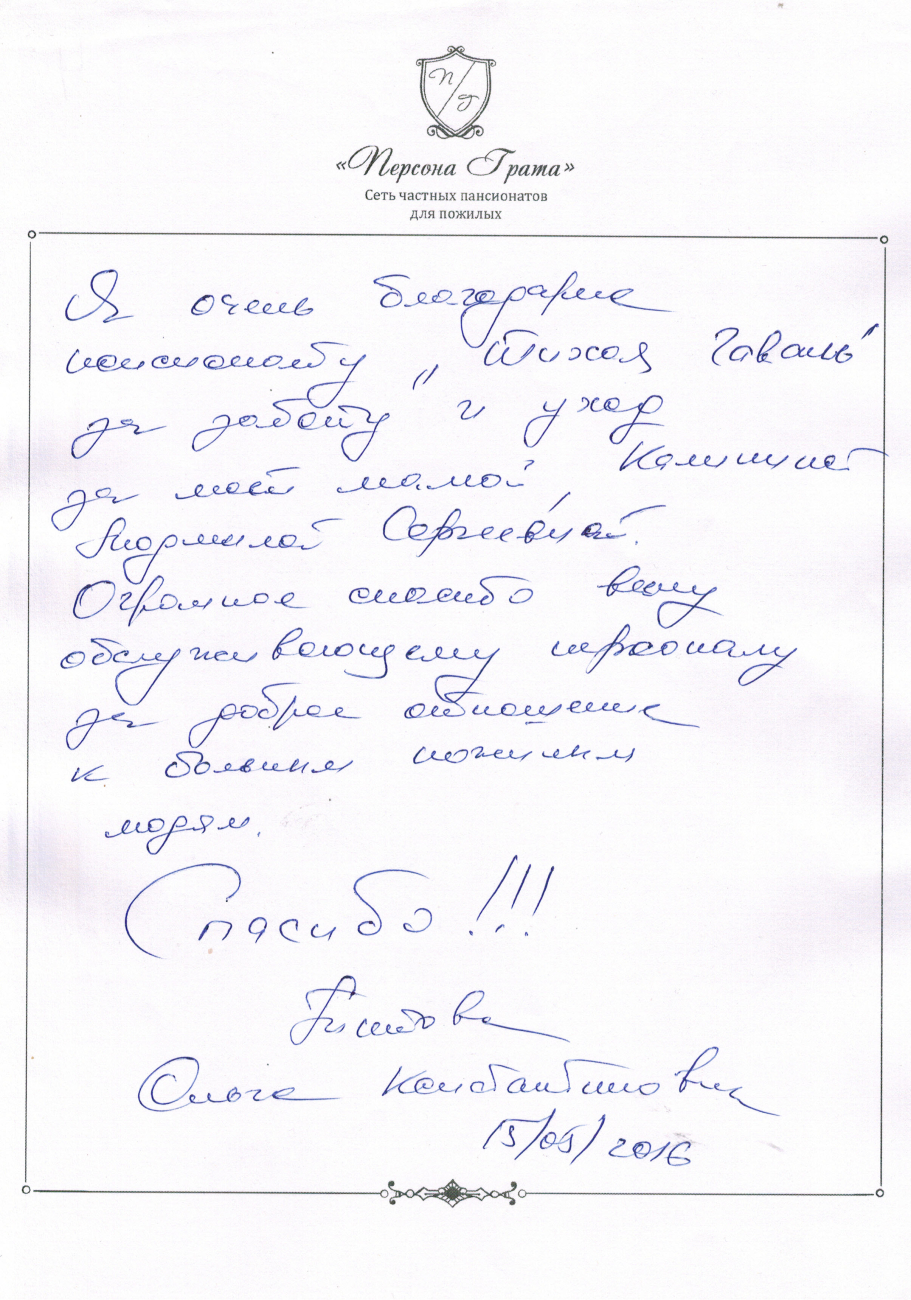 П Г
«Персона Грата»
Сеть частных пансионатов
для пожилых
Я очень благодарна
пансионату „Тихая Гавань"
за заботу и уход
за моей мамой, Калининой
Людмилой Сергеевной.
Огромное спасибо всему
обслуживающему персоналу
за доброе отношение
к больным пожилым
людям.
Спасибо!!!
Ольга Константиновна
15/05/2016